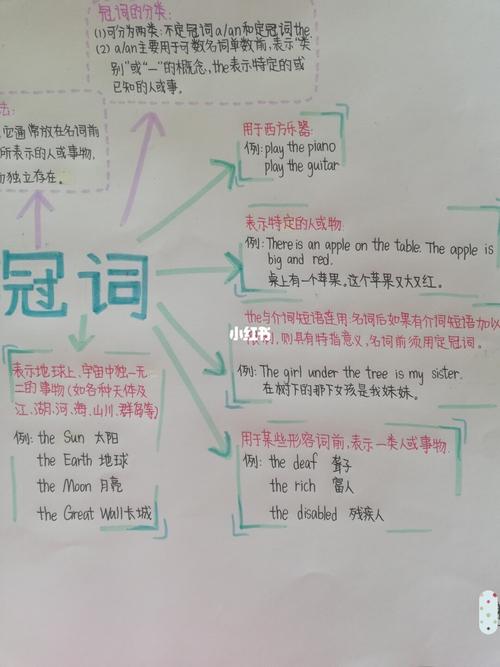 冠词的分类:
(1)可分为两类:不定冠词a/an和定冠词the.
(2) a/an主要用于可数名词单数前,表示“类
别”或“一”的概念,the表示特定的或
已知的人或事。
法:
它通常放在名词前
所表示的人或事物,
独立存在。
用于西方乐器:
例:play the piano
play the guitar
表示特定的人或物:
例:There is an apple on the table. The apple is
big and red.
桌上有一个苹果。这个苹果又大又红。
冠词
小红书
the与介词短语连用:名词后如果有介词短语加以
限制,则具有特指意义,名词前须用定冠词。
例:The girl under the tree is my sister.
在树下的那个女孩是我妹妹。
表示地球上、宇宙中独一无
二的事物(如各种天体及
江、湖、河、海、山川、群岛等)
例: the Sun 太阳
the Earth 地球
the Moon 月亮
the Great Wall长城
用于某些形容词前,表示一类人或事物:
例: the deaf 聋子
the rich 富人
the disabled 残疾人